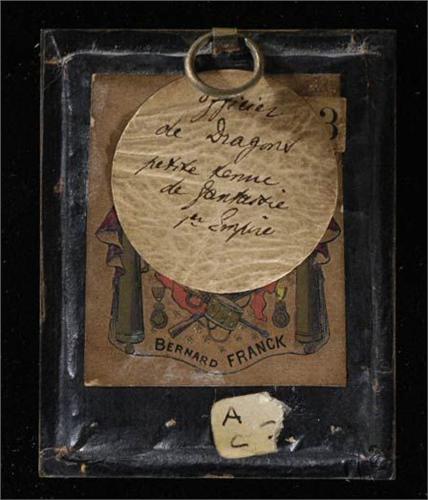 officier
de Dragons
petite tenue
de fantaisie
1er Empire
3
BERNARD FRANCK
A
C